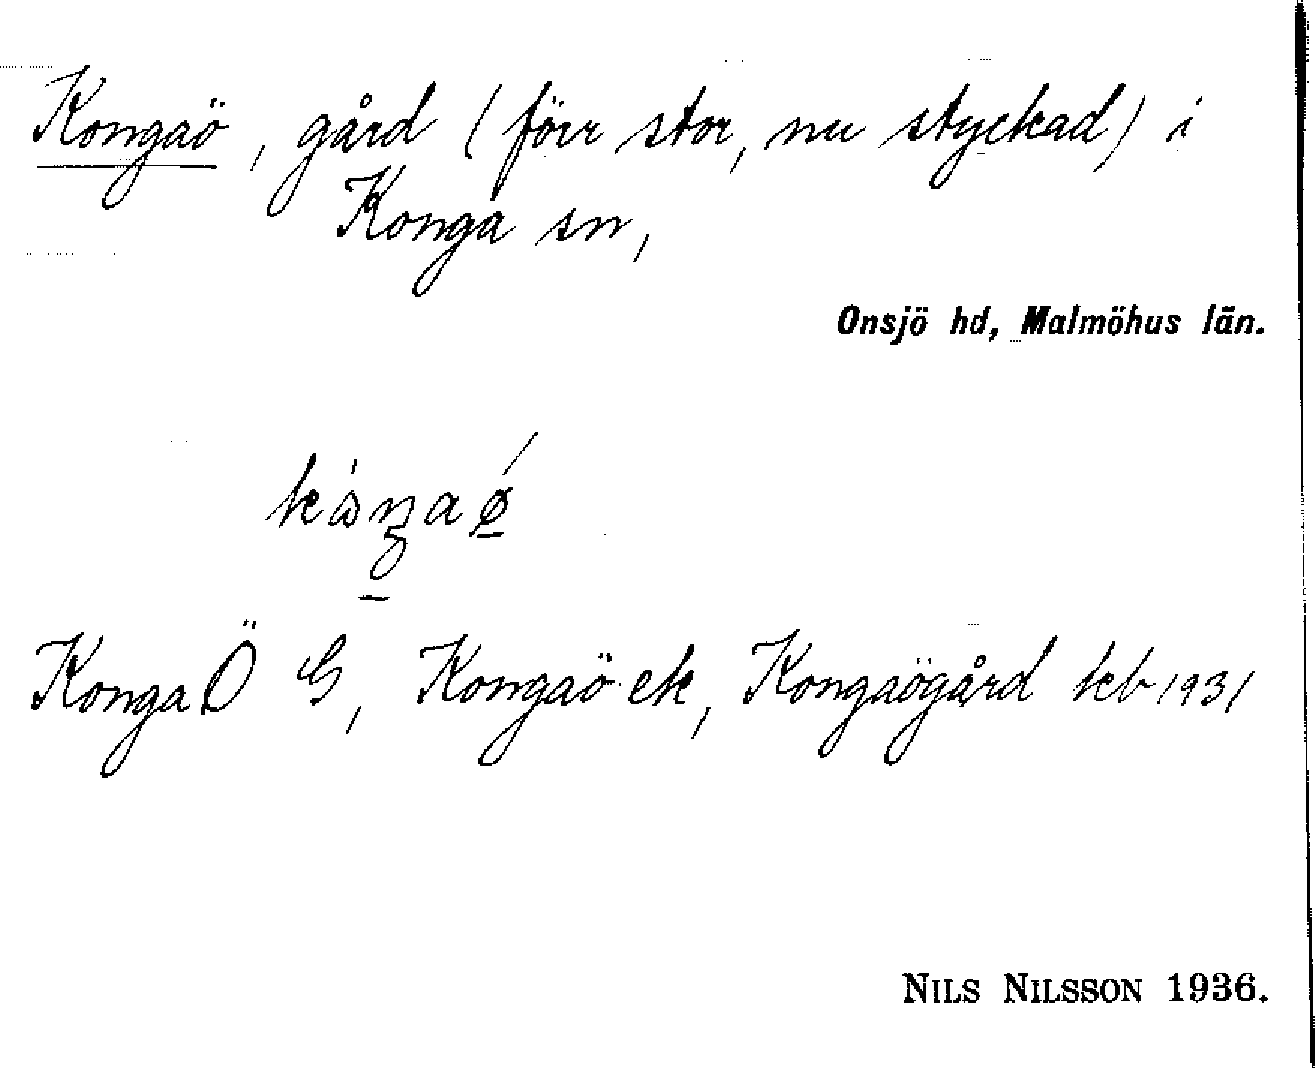 Kongaö, gård (förr stor, nu styckad) i
Konga sn,
Onsjö hd, Malmöhus län.
Konga Ö G, Kongaö ek, Kongaögård kb 1931
NILS NILSSON 1936.